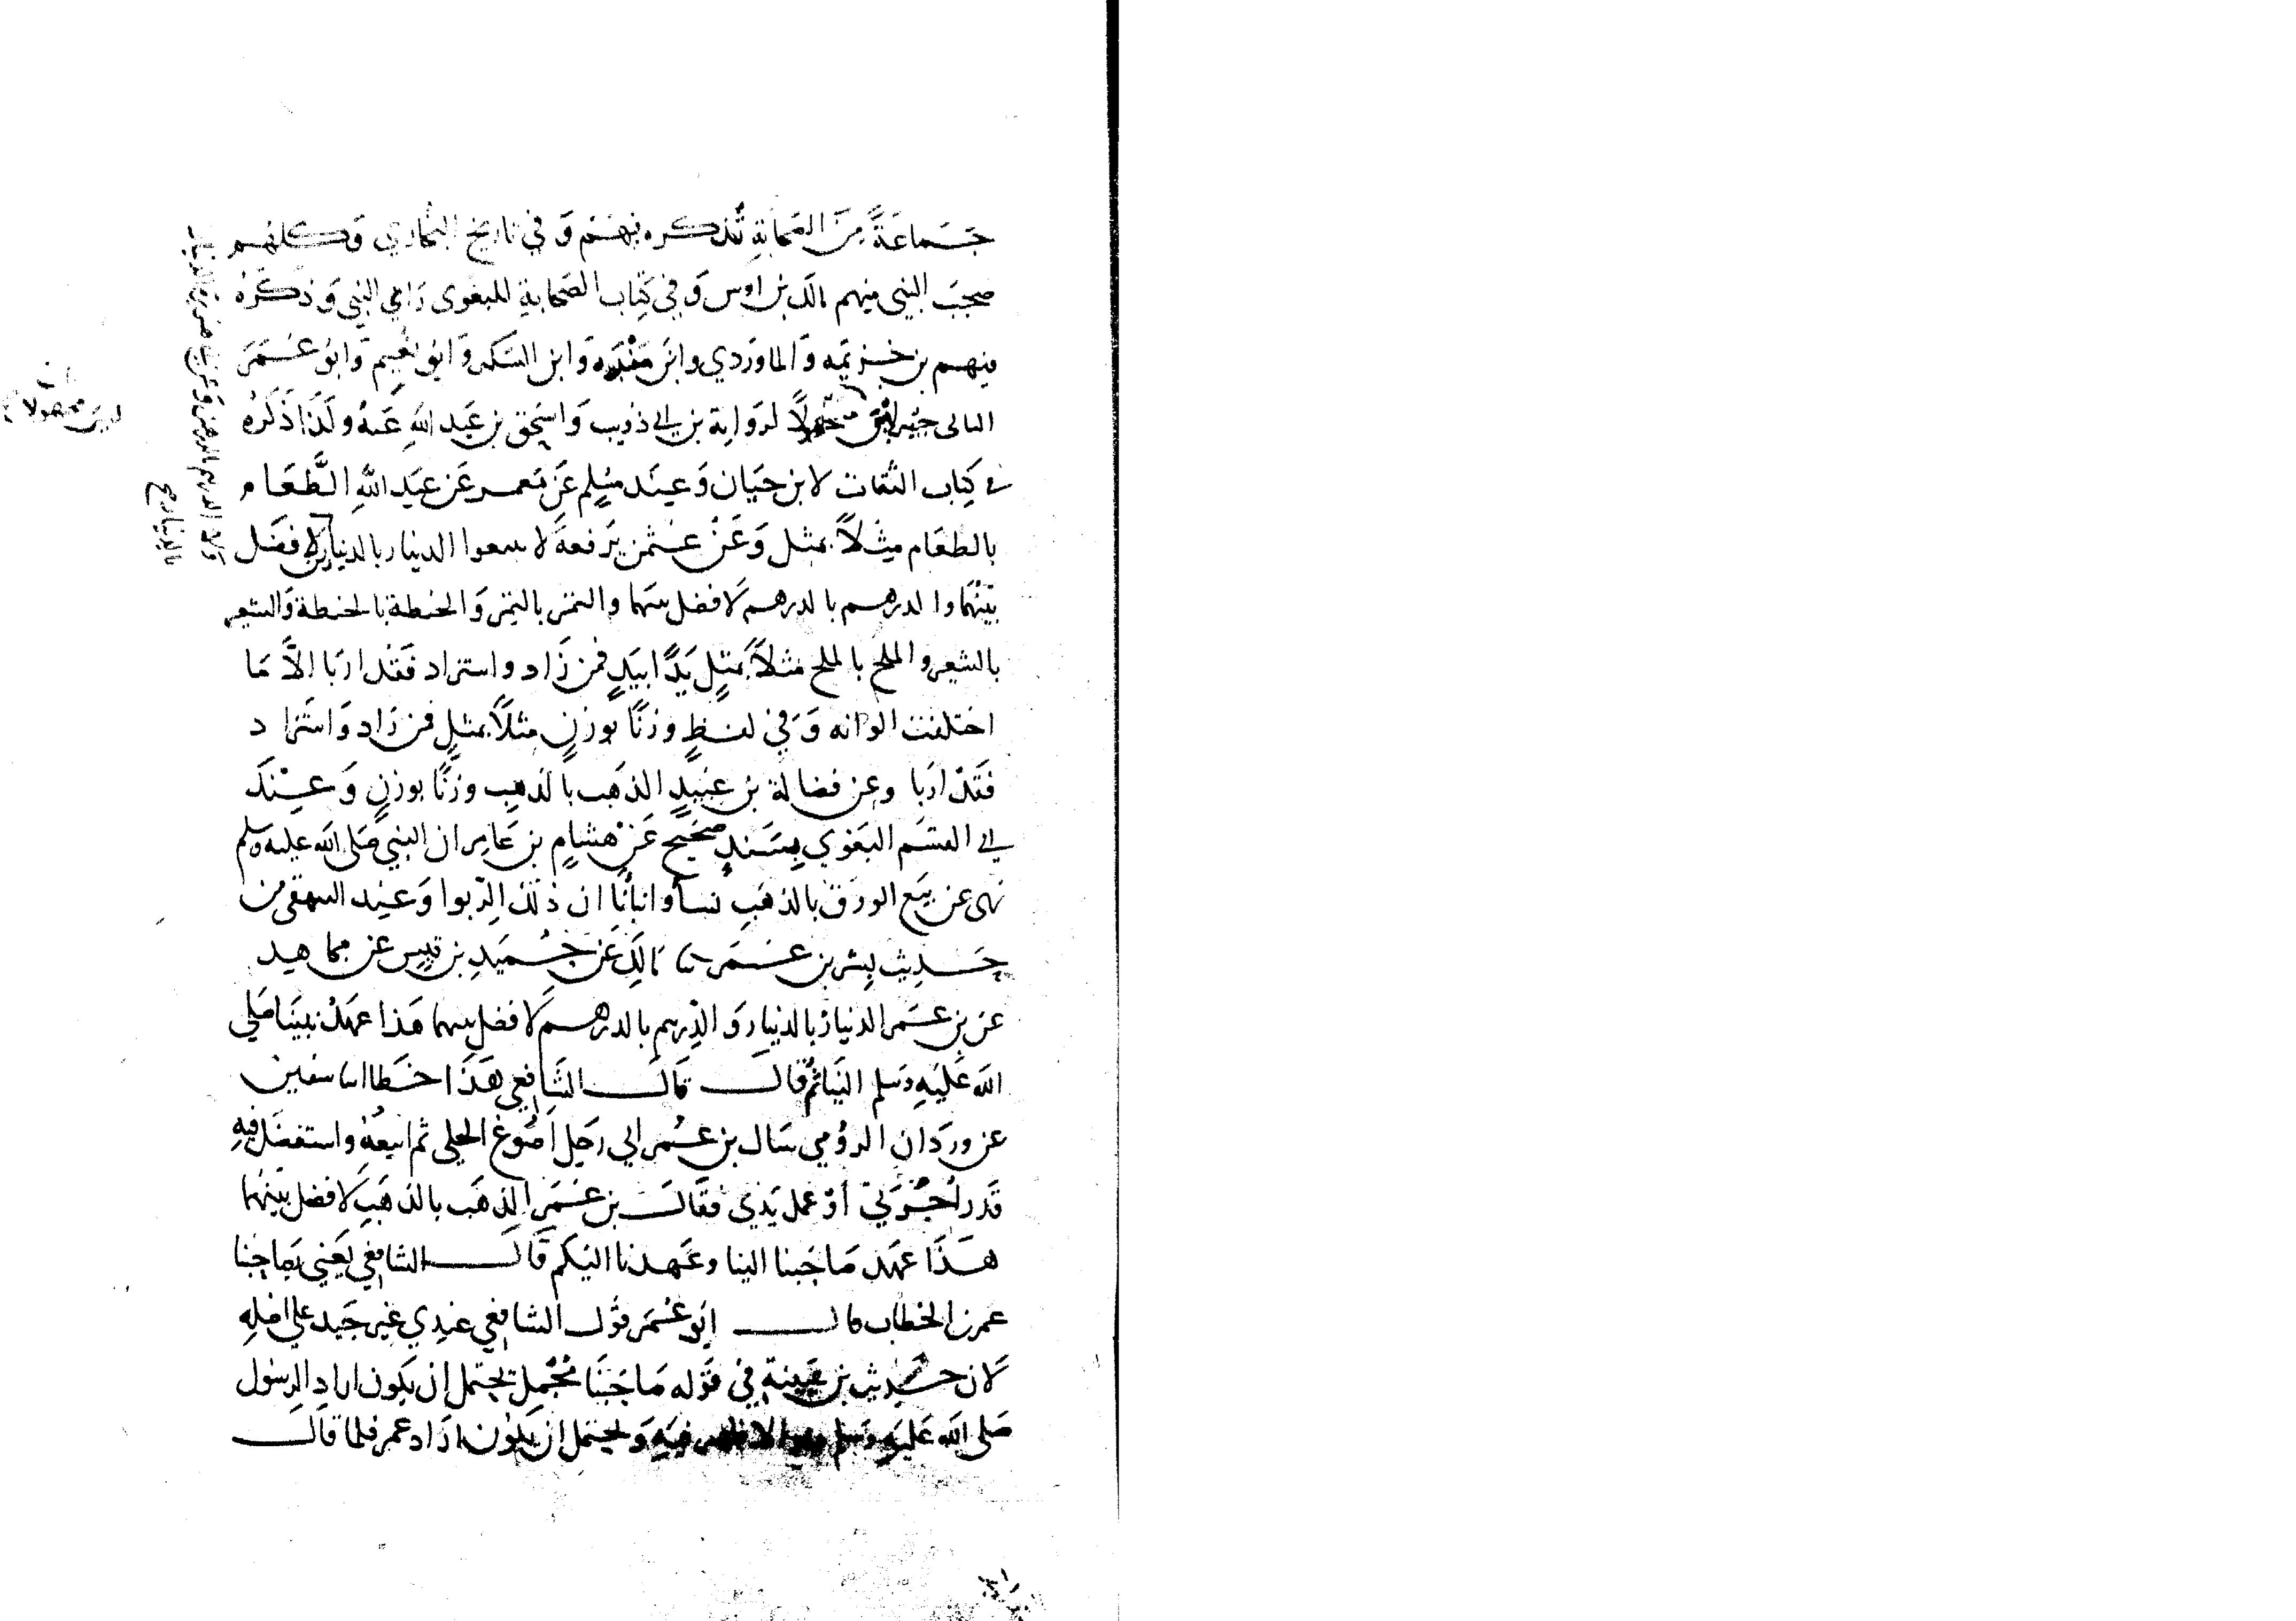 جماعة من الصحابة نذكره فيهم وفي تاريخ البخاري وكلهم
صحب النبي منهم مالك بن اوس وفي كتاب الصحابة للبغوي رأى النبي وذكره
فيهم بن خزيمه والماوردي وابن منده وابن السكن وابو نعيم وابو عمر
الثاني مجهولا لرواية بن ابي ذويب واسحق بن عبد الله عنه ولذا ذكره
في كتاب الثقات لابن حبان وعند مسلم عن معمر عن عبد الله الطعام
بالطعام مثلا بمثل وعن عثمن يرفعه لا تبيعوا الدينار بالدينار لا فضل
بينهما والدرهم بالدرهم لا فضل بينهما والتمر بالتمر والحنطة بالحنطة والشعير
بالشعير والملح بالملح مثلا بمثل يدا بيد فمن زاد واستزاد فقد اربا الا ما
اختلفت الوانه وفي لفظ وزنا بوزن مثلا بمثل فمن زاد واستزاد
فقد اربا وعن فضالة بن عبيد الذهب بالذهب وزنا بوزن وعند
ابي القسم البغوي بسند صحيح عن هشام بن عامر ان النبي صلى الله عليه وسلم
نهى عن بيع الورق بالذهب نسأ وانبأنا ان ذلك الربوا وعند البيهقي من
حديث بشر بن عمر ثنا مالك عن حميد بن قيس عن مجاهد
عن بن عمر الدينار بالدينار والدرهم بالدرهم لا فضل بينهما هذا عهد نبينا صلى
الله عليه وسلم الينا ثم قال قال الشافعي هذا خطا انا سفين
عن وردان الرومي سال بن عمر اني رجل اصوغ الحلي ثم ابيعه واستفضل فيه
قدر اجرتي أو عمل يدي فقال بن عمر الذهب بالذهب لا فضل بينهما
هذا عهد صاحبنا الينا وعهدنا اليكم قال الشافعي يعني بصاحبنا
عمر بن الخطاب قال ابو عمر قول الشافعي عندي غير جيد على اصله
لان حديث بن عيينة في قوله صاحبنا مجمل يحتمل ان يكون اراد الرسول
صلى الله عليه وسلم وهو الاظهر فيه ويحتمل ان يكون اراد عمر فلما قال